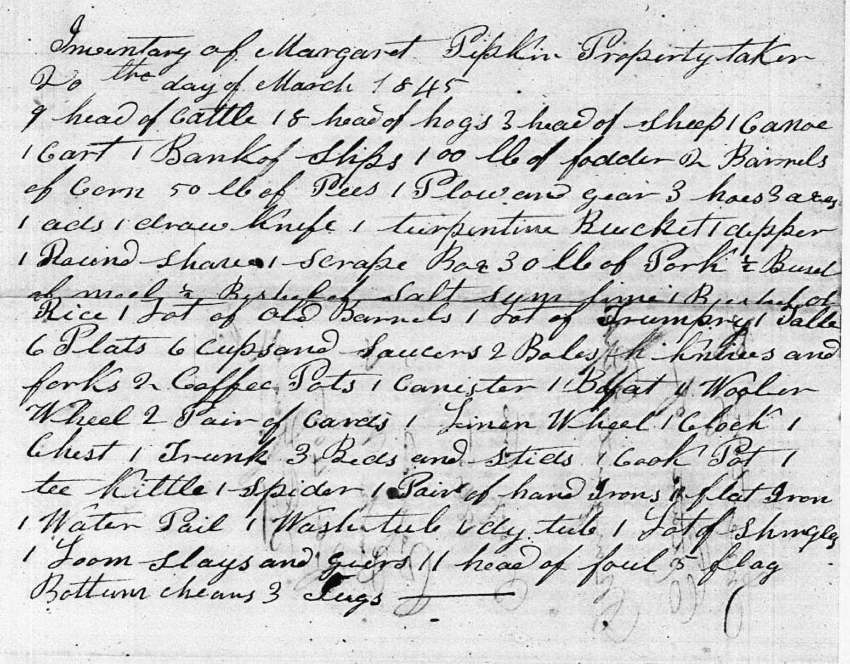 Inventary of Margaret Pipkin Property taken
20 the day of March 1845
9 head of Cattle 18 head of hogs 3 head of Sheep 1 Canoe
1 Cart 1 Bank of Slips 100 lb of fodder 2 Barrels
of Corn 50 lb of Pees 1 Plow and gear 3 hoes 3 axes
1 ads 1 draw Knife 1 turpentine Bucket 1 dipper
1 Round Shave 1 Scrape Box 30 lb of Pork ½ Busel
of meel ½ Bushel of Salt Sum lime 1 Bushel of
Rice 1 Lot of Old Barrels 1 Lot of Trumpry 1 Table
6 Plats 6 Cups and Saucers 2 Boles knives and
forks 2 Coffee Pots 1 Canester 1 1 Woolen
Wheel 2 Pair of Cards 1 Linen Wheel 1 Clock 1
Chest 1 Trunk 3 Beds and Stids 1 Cook Pot 1
tee Kittle 1 Spider 1 Pair of hand Irons 1 flat Iron
1 Water Pail 1 Wash tub 1 dy tub 1 Lot of Shingles
1 Loom Slays and giers 11 head of foul 5 flag
Bottum chears 3 Jugs